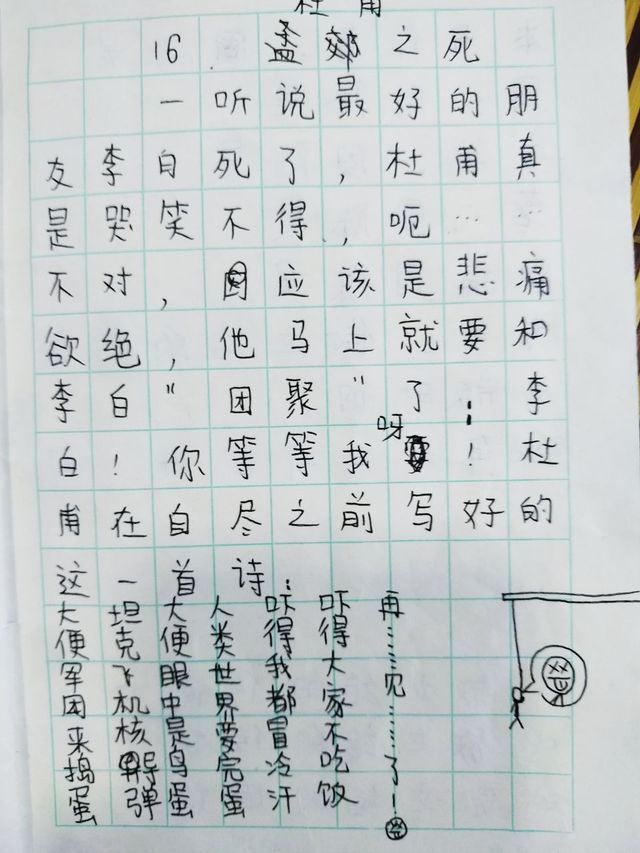 杜甫
16 孟郊之死
一听说最好的朋
友李白死了，杜甫真
是哭笑不得，呃……
不对，应该是悲痛
欲绝，他马上就要和
李白"团聚"了：李
白！你等等我呀！杜
甫在自尽之前写好的
这一首诗：
大便军团来捣蛋
坦克飞机核导弹
大便眼中是鸟蛋
人类世界要完蛋
吓得我都冒冷汗
吓得大家不吃饭
再……见……了！